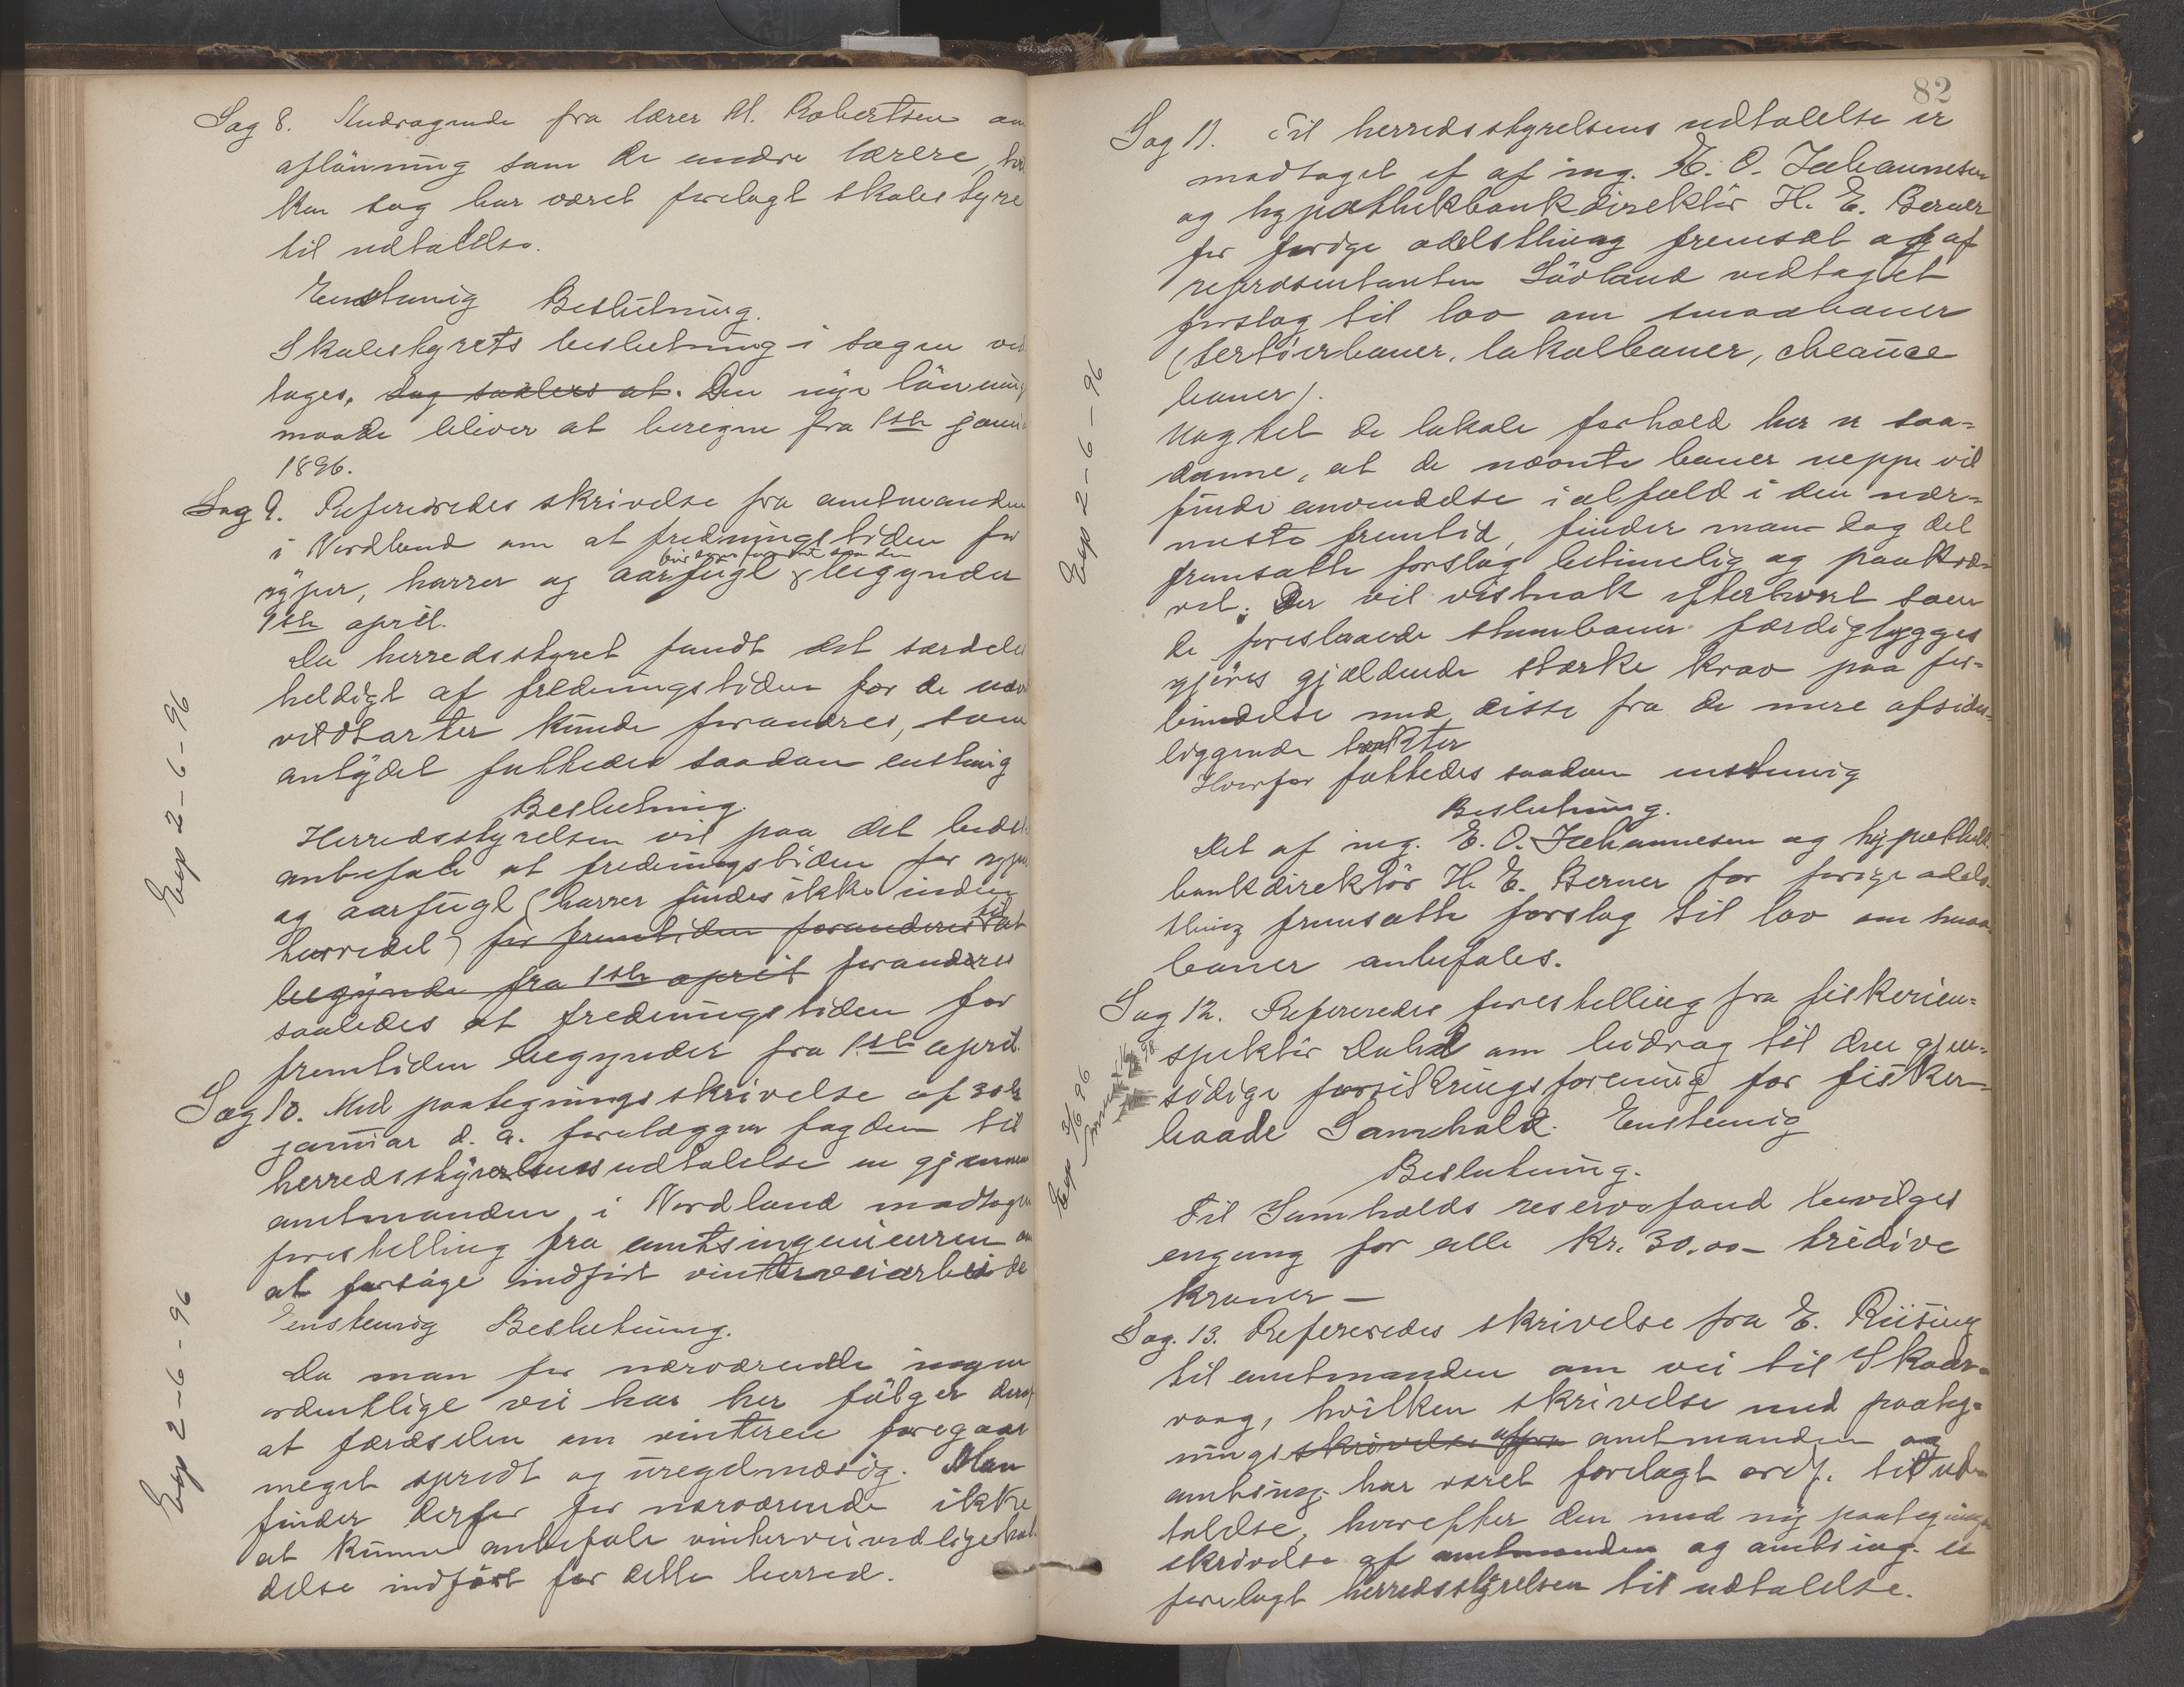 Sag 8. Andragende fra lærer M. Robertsen om
aflönning som de andre lærere, hvil
ken sag har været forelagt skolestyre
til udtalelse.
Enstemig Beslutning.
Skolestyrets beslutning i sagen ved
tages, dog saaledes at. Den nye lönnings
maade bliver at beregne fra 1ste januar
1896.
Sag 9. Refereredes skrivelse fra amtmanden
i Nordland om at fredningstiden for
ryper, harrer og aarfugl begynder
1ste april.
Da herredsstyret fandt det særdeles
heldigt af fredningstiden for de nævn
vildtarter kunde forandres, som
antydet fattedes saadan enstemig
Beslutning.
Herredsstyrelsen vil paa det bedste
anbefale at fredningstiden for ryper
og aarfugl (harrer findes ikke inden
herredet) for fremtiden forandres til at
begynde fra 1ste april forandres
saaledes at fredningstiden for
fremtiden begynder fra 1ste april.
Sag 10. Med paategningsskrivelse af 30te
januar d. a. forelægger fogden til
herredsstyrelsens udtalelse en gjennem
amtmanden i Nordland modtagen
forestilling fra amtsingeniøren om
at forsøge indført vinterveiarbeide
enstemig Beslutning.
Da man for nærværende ingen
ordentlige vei har her følger deraf
at færdselen om vinteren foregaar
meget spredt og uregelmæsig. Man
finder derfor for nærværende ikke
at kunne anbefale vinterveivedligehol
delse indført for dette herred.
Exp 2-6-96
Exp 2-6-96
82
Sag 11. Til herredsstyrelsens udtalelse er
modtaget et af ing. E. O. Johannesen
og hypothekbankdirektør H. E. Berner
for forige odelsthing fremsat og af
repræsentanten Lövland vedtaget
forslag til lov om smaabaner
(tertiærbaner, lokalbaner, chausse
baner).
Uagtet de lokale forhold her er saa-
danne, at de nævnte baner neppe vil
finde anvendelse ialfald i den nær-
meste fremtid, finder man dog det
fremsatte forslag betimelig og paakræ-
vet. Der vil vistnok efterhvert som
de foreslaaede stambaner færdiglygges
gjöres gjældende stærke krav paa for-
bindelse med disse fra de mere afsides-
liggende trakter
Hvorfor fattedes saadan enstemig
Beslutning.
Det af ing. E. O. Johannesen og hypothek-
bankdirektör H. E. Berner for forige odels-
thing fremsatte forslag til lov om smaa-
baner anbefales.
Sag 12. Refereredes forestilling fra fiskeriin-
spektör Dahl om bidrag til den gjen-
sidige forsikringsforening for fisker-
baade Samhold. Enstemig
Beslutning.
Til Samholds reservefond bevilges
engang for alle Kr. 30.00 - tredive
kroner —
Sag. 13. Refereredes skrivelse fra E. Riising
til amtmanden om vei til Skaar-
vaag, hvilken skrivelse med paateg-
nings skrivelse af fra amtmanden og
amtsing. har været forelagt ordf. til ud-
talelse, hvorefter den med ny paategnings
skrivelse af amtmanden og amtsing. er
forelagt herredsstyrelsen til udtalelse.
Exp 2-6-96
Exp 3/6 96